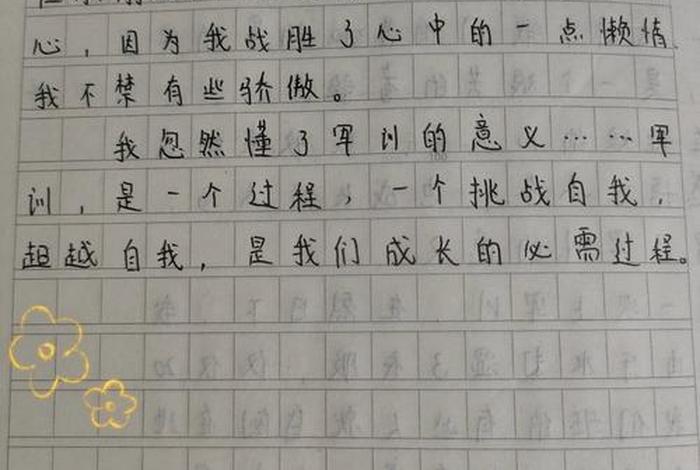 心，因为我战胜了心中的一点懒惰，
我不禁有些骄傲。
我忽然懂了军训的意义……军
训，是一个过程，一个挑战自我，
超越自我，是我们成长的必需过程。